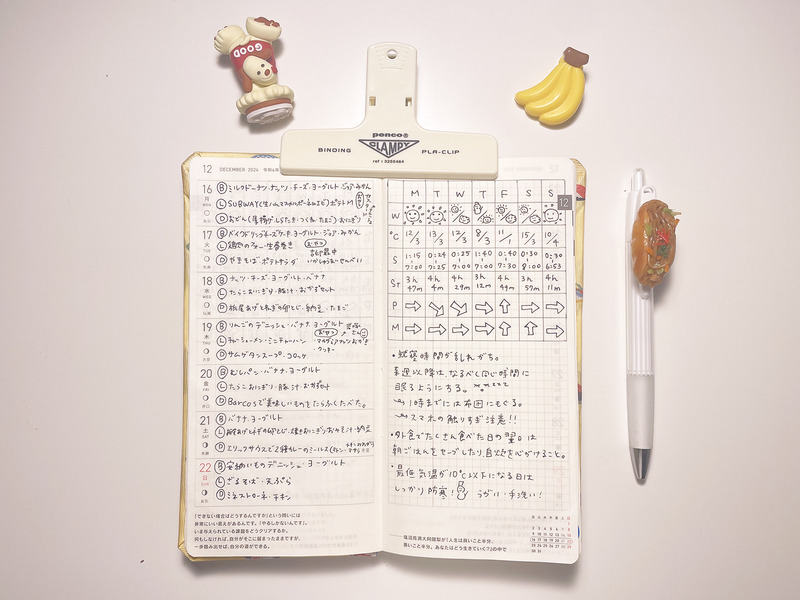 GOOD
penco®
BINDING
CLAMPY
PLA-CLIP
12 DECEMBER 2024
16 月
Ⓑ ミルクドーナツ・ナッツ・チーズ・ヨーグルト・ジョア・みかん
Ⓛ SUBWAY(生ハムマスカルポーネ&エビ)ポテトM
Ⓓ おでん(厚揚げ・しらたき・つくね・たまご)おにぎり
17 火
Ⓑ ベイクドリングチーズケーキ・ヨーグルト・ジョア・みかん
Ⓛ 鶏肉のフォー・生春巻き
おやつ
Ⓓ やきそば・ポテトサラダ
18 水
Ⓑ ナッツ・チーズ・ヨーグルト・バナナ
Ⓛ たらこおにぎり・豚汁・おかずセット
Ⓓ 栃尾あげとねぎの卵とじ・納豆・たまご
19 木
Ⓑ りんごのデニッシュ・バナナ・ヨーグルト
Ⓛ チャーシューメン・ミニチャーハン
おやつ
クッキー
Ⓓ サムゲタンスープ・コロッケ
20 金
Ⓑ むしパン・バナナ・ヨーグルト
Ⓛ たらこおにぎり・豚汁・おかずセット
Ⓓ Barcosで美味しいものをたらふくたべた。
21 土
Ⓑ バナナ・ヨーグルト
Ⓛ 栃尾あげとねぎの卵とじ・焼きおにぎり・おみそ汁・納豆
Ⓓ エリックサウスで2種カレーのミールス
22 日
Ⓑ 安納いものデニッシュ・ヨーグルト
Ⓛ ざるそば・天ぷら
Ⓓ ミネストローネ・チキン
「できない場合はどうするんですか」という問いには
非常にいい答えがあるんです。「やるしかないんです」。
いま与えられている課題をどうクリアするか。
何もしなければ、自分がそこに留まったままですが、
一歩踏み出せば、自分の道ができる。
M T W T F S S
12
W
℃ 12/3 13/3 12/3 8/3 11/1 15/3 10/4
S 1:15 0:24 0:25 1:40 0:40 0:30 0:30
7:00 7:25 7:00 7:00 7:30 8:00 6:53
St 3h 4h 4h 3h 4h 3h 4h
47m 4m 29m 12m 44m 57m 11m
P → ↘ ↘ → ↑ → →
M → → → → ↑ ↑ →
・就寝時間が乱れがち。
来週以降は、なるべく同じ時間に
眠るようにする。
1時までには布団にもぐる。
スマホの触りすぎ注意!!
・外食でたくさん食べた日の翌日は
朝ごはんをセーブしたり自炊を心がけること。
・最低気温が10℃以下になる日は
しっかり防寒! うがい・手洗い!
塩沼亮潤大阿闍梨が『人生は良いこと半分、
良いこと半分、あなたはどう生きていく?』の中で